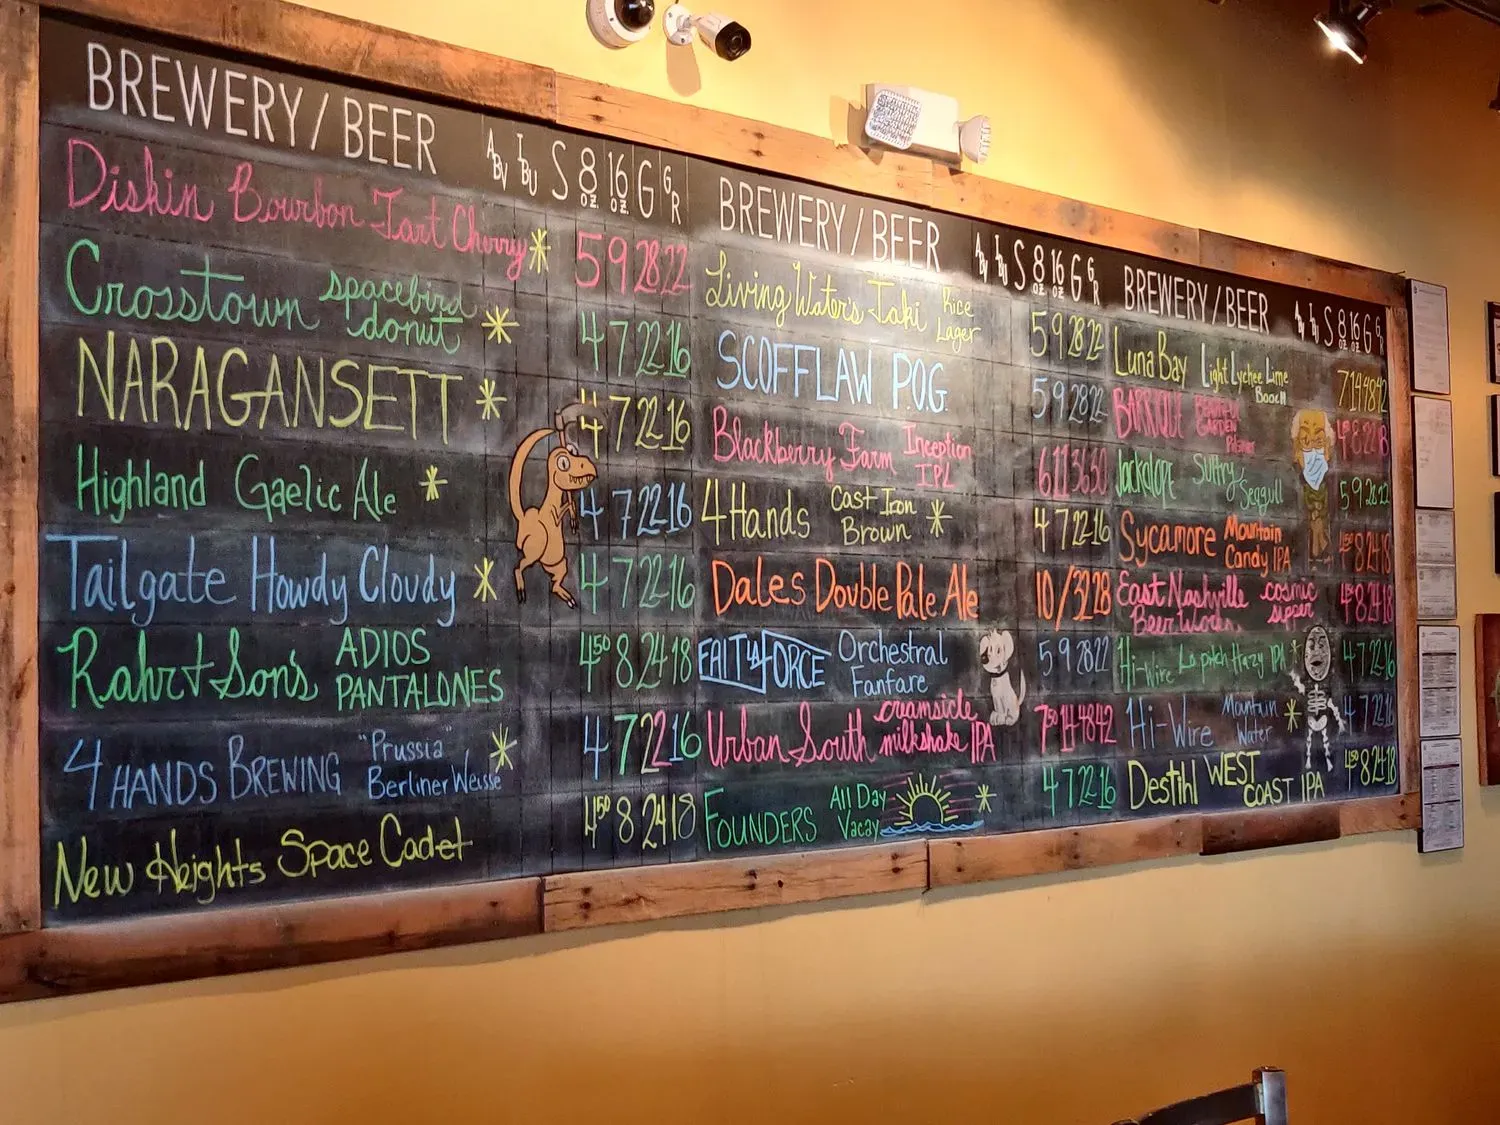 BREWERY/BEER ABV IBU S 8 OZ. 16 OZ. G GR
Diskin Bourbon Tart Cherry * 5 9 28 22
Crosstown spacebird donut * 4 7 22 16
NARAGANSETT * 4 7 22 16
Highland Gaelic Ale * 4 7 22 16
Tailgate Howdy Cloudy * 4 7 22 16
Rahr & Sons ADIOS PANTALONES 4 50 8 24 18
4 HANDS BREWING "Prussia" Berliner Weisse * 4 7 22 16
New Heights Space Cadet 4 50 8 24 18
BREWERY/BEER ABV IBU S 8 OZ. 16 OZ. G GR
Living Waters Taki Rice Lager 5 9 28 22
SCOFFLAW P.O.G. 5 9 28 22
Blackberry Farm Inception IPL 6 11 36 30
4 Hands Cast Iron Brown * 4 7 22 16
Dales Double Pale Ale 10 / 32 28
FAIT LA FORCE Orchestral Fanfare 5 9 28 22
Urban South creamsicle milkshake IPA 7 50 14 48 42
FOUNDERS All Day Vacay * 4 7 22 16
BREWERY/BEER S 8 OZ. 16 OZ. G GR
Luna Bay Light Lychee Lime Booch 7 14 48 42
BARRIQUE BEAUTIFUL GARDEN Pilsner
Jackalope Sultry Seagull 5 9 28 22
Sycamore Mountain Candy IPA 4 50 8 24 18
East Nashville Beer Works. cosmic sipper 4 50 8 24 18
Hi-Wire Lo pitch Hazy IPA * 4 7 22 16
Hi-Wire Mountain Water * 4 7 22 16
Destihl WEST COAST IPA 4 50 8 24 18